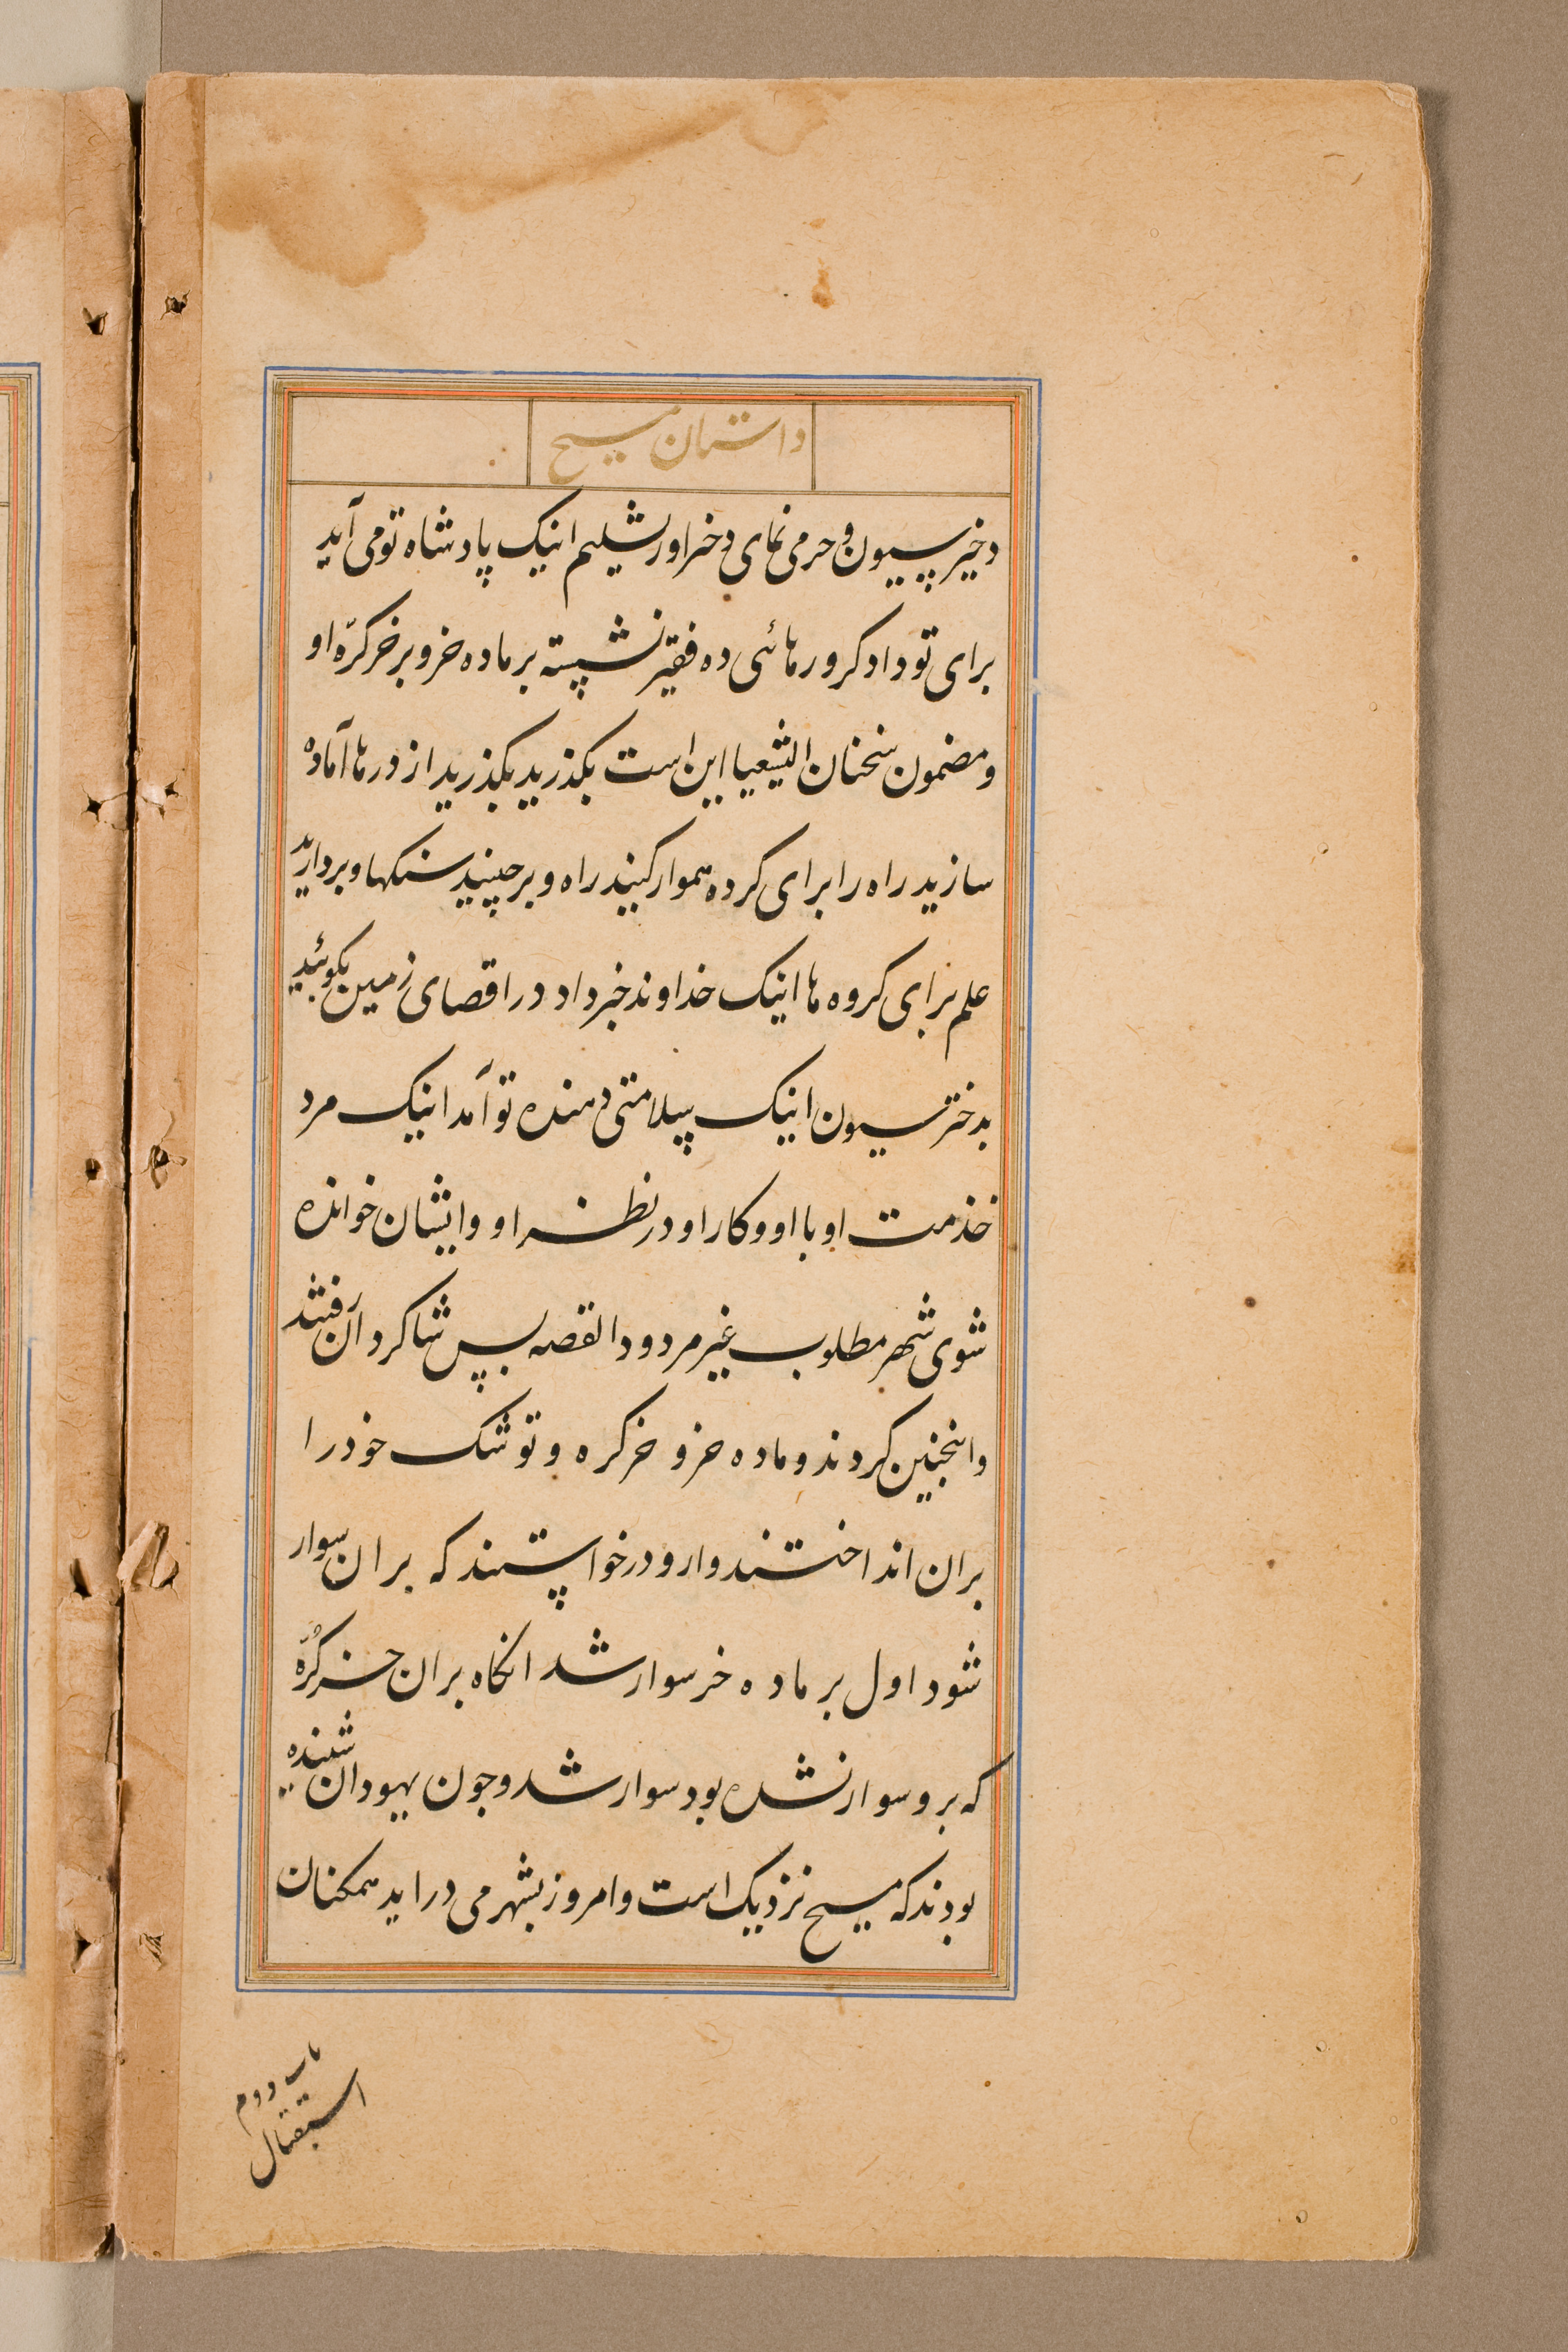 داستان مسیح
دخیر سیون و خرمی نمای دختر اورشلیم اینک پادشاه تو می آید
برای تو دادکر و رهائی ده فقیر نشسته بر ماده خر و بر خر کرّه او
و مضمون سخنان الیشعیا این است بکذرید بکذرید از درها آماده
سازید راه را برای کروه هموار کنید راه و برچینید سنکها و بردارید
علم برای کروه ها اینک خداوند خبر داد در اقصای زمین بکوئید
بدختر سیون اینک سلامتی دهنده تو آمد اینک مرد
خذمت او با او و کار او در نظر او و ایشان خوانده
شوی شهر مطلوب غیر مردود القصه پس شاکردان رفتند
و انچنین کردند و ماده خر و خر کره و توشک خود را
بران انداختند و ازو درخواستند که بران سوار
شود اول بر ماده خر سوار شد انکاه بران خر کُرّه
که برو سوار نشده بود سوار شد و چون یهودان شنیده
بودند که مسیح نزدیک است و امروز بشهر می دراید همکنان
باب دوم
استقبال